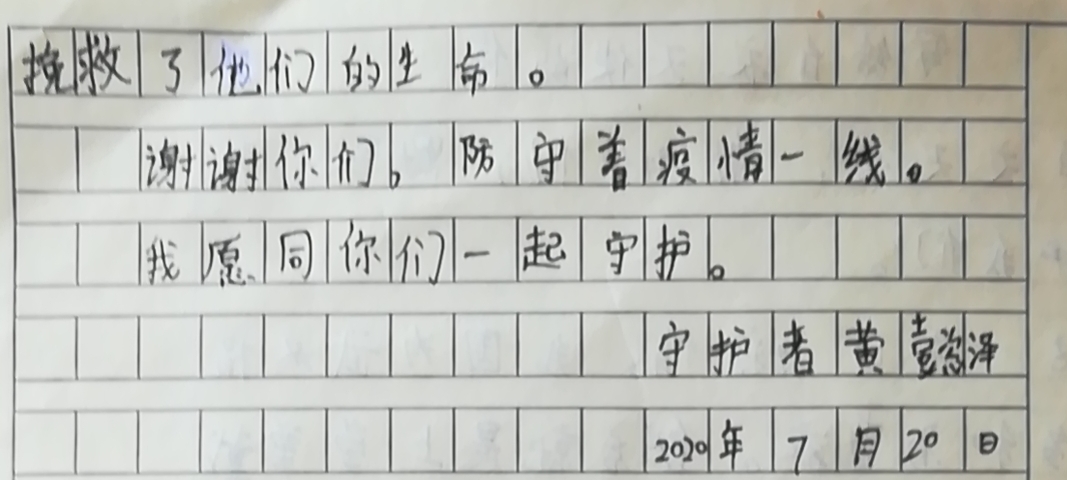 挽救了他们的生命。
谢谢你们。防守着疫情一线。
我愿同你们一起守护。
守护者黄懿泽
2020年7月20日